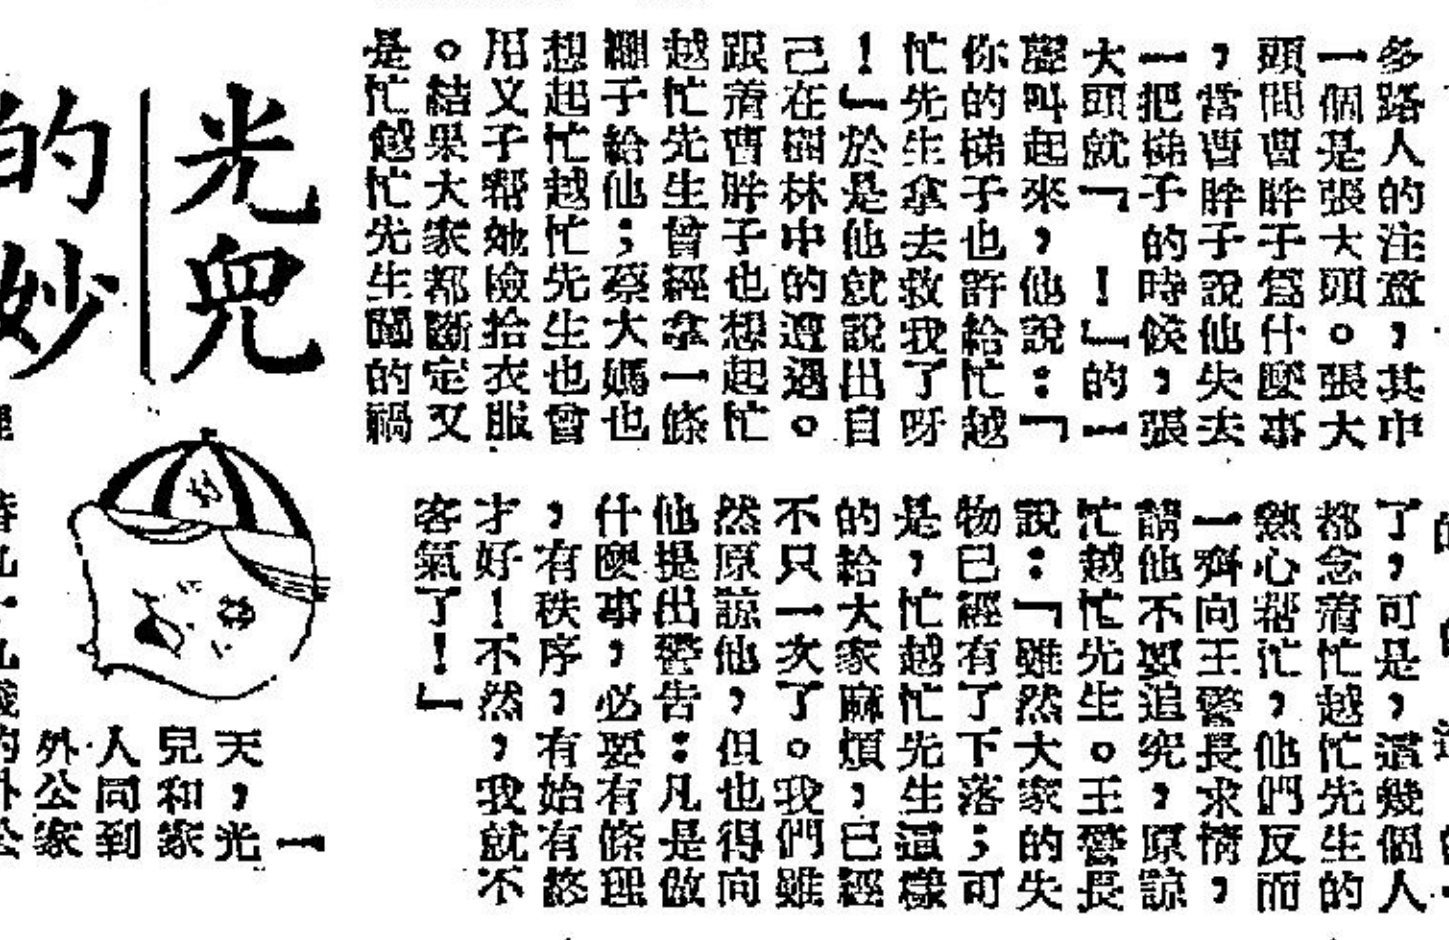 多路人的注意，其中
一個是張大頭。張大
頭問曹胖子爲什麼事
，當曹胖子說他失去
一把梯子的時候，張
大頭就「！」的一
聲叫起來，他說：「
你的梯子也許給忙越
忙先生拿去救我了呀
！」於是他就說出自
己在樹林中的遭遇。
跟着曹胖子也想起忙
越忙先生曾經拿一條
繃子給他；蔡大媽也
想起忙越忙先生也曾
用叉子幫她險拾衣服
。結果大家都斷定又
是忙越忙先生闖的禍
了，可是，這幾個人
都念着忙越忙先生的
熱心幫忙，他們反而
一齊向王警長求情，
請他不要追究，原諒
忙越忙先生。王警長
說：「雖然大家的失
物已經有了下落；可
是，忙越忙先生這樣
的給大家麻煩，已經
不只一次了。我們雖
然原諒他，但也得向
他提出警告：凡是做
什麼事，必要有條理
，有秩序，有始有終
才好！不然，我就不
客氣了！」
光兒
的妙
一
天，光
兒和家
人同到
外公家